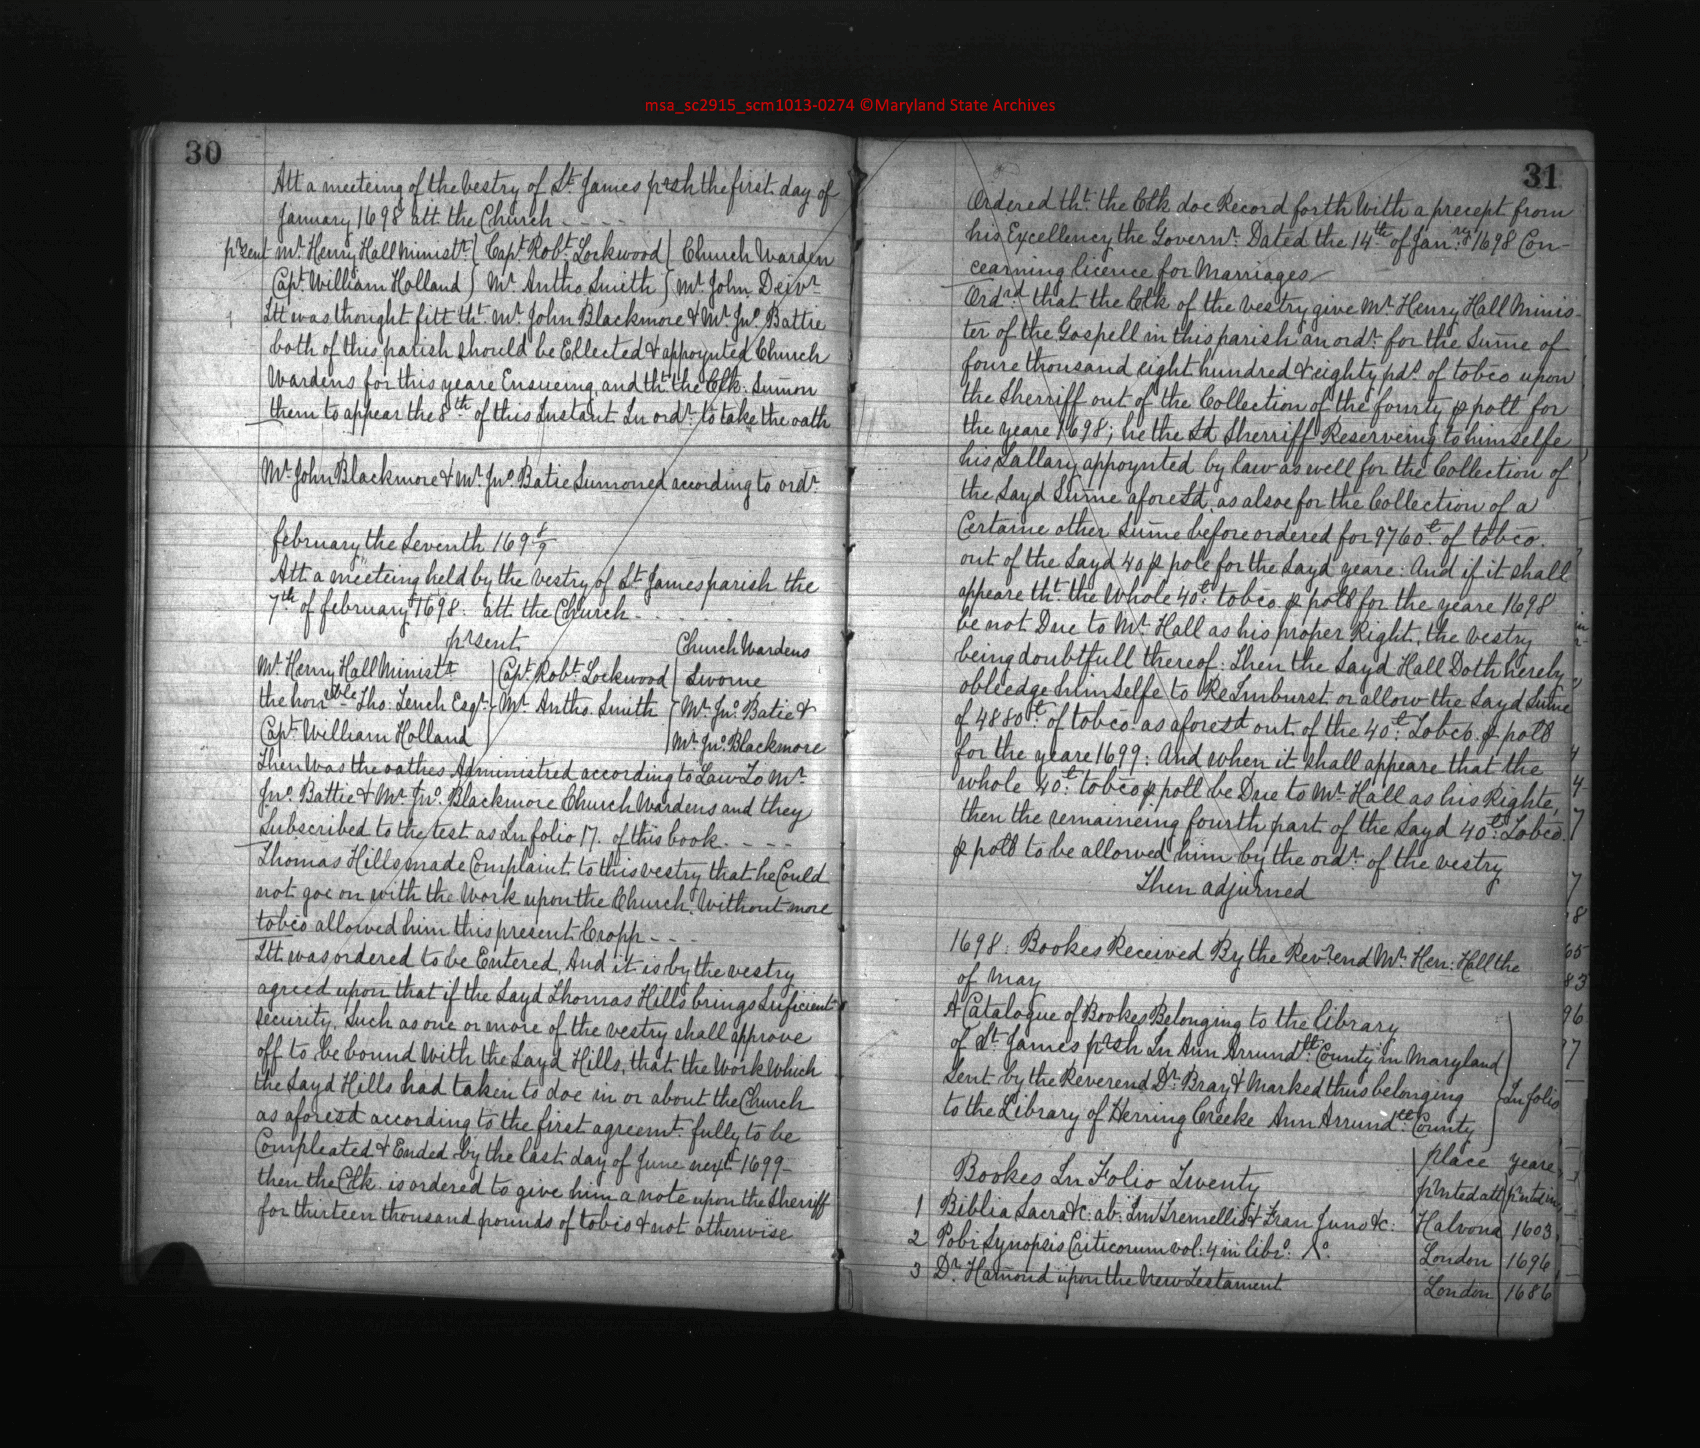 msa_sc2915_scm1013-0274 ©Maryland State Archives
30
Att a meeteing of the vestry of St. James prsh the first day of
January 1698 att the Church
prsent Mr. Henry Hall Ministr. Capt. Robt. Lockwood Church Warden
Capt. William Holland Mr. Antho. Smith Mr. John Deivr.
Itt was thought fitt tht. Mr. John Blackmore & Mr. Jno. Battie
both of this parish should be Ellected & appoynted Church
Wardens for this yeare Ensueing and tht the Clk. Sumon
them to appear the 8th of this Instant In ordr. to take the oath
Mr. John Blackmore & Mr. Jno. Batie Sumoned according to ordr.
february the Seventh 169 8/9
Att a meeteing held by the vestry of St. James parish the
7th of february 1698. att the Church
prsent Church Wardens
Mr. Henry Hall Ministr Capt. Robt. Lockwood Sworne
the honrble Tho. Tench Esqr. Mr. Antho. Smith Mr. Jno. Batie &
Capt. William Holland Mr. Jno. Blackmore
Then Was the oathes Administred according to Law To Mr.
Jno. Battie & Mr. Jno. Blackmore Church Wardens and they
Subscribed to the test as In folio 17. of this book.
Thomas Hills made Complaint to this vestry that he Could
not goe on with the Work upon the Church, Without more
tobco allowed him this present Cropp
Itt was ordered to be Entered, And it is by the vestry
agreed upon that if the Sayd Thomas Hills brings Suficient
security, Such as one or more of the vestry shall approve
off to be bound With the Sayd Hills, that the Work Which
the Sayd Hills had taken to doe in or about the Church
as aforesd according to the first agreemt. fully to be
Compleated & Ended by the last day of June next 1699
then the Clk. is ordered to give him a note upon the Sherriff
for thirteen thousand pounds of tobco & not otherwise
31
Ordered tht. the Clk doe Record forth With a precept from
his Excellency the Governr. Dated the 14th of Janry 1698 Con-
cearning licence for Marriages
Ordrd. that the Clk of the vestry give Mr. Henry Hall Minis-
ter of the Gospell in this parish an ordr. for the Sume of
foure thousand eight hundred & eighty pds. of tobco upon
the Sherriff out of the Collection of the fourty p poll for
the yeare 1698; he the Sd Sherriff Reserveing to himselfe
his Sallary appoynted by law as well for the Collection of
the Sayd Sume aforesd, as alsoe for the Collection of a
Certaine other Sume before ordered for 9760 t. of tobco.
out of the Sayd 40 p pole for the Sayd yeare: And if it shall
appeare tht. the Whole 40 t. tobco p poll for the yeare 1698
be not Due to Mr. Hall as his proper Right, the vestry
being doubtfull thereof: Then the Sayd Hall Doth hereby
obleedge himselfe to ReImburst or allow the Sayd Sume
of 4880 t. of tobco as aforesd out of the 40 t. Tobco. p poll
for the yeare 1699: And when it shall appeare that the
whole 40 t. tobco p poll be Due to Mr. Hall as his Righte,
then the remaineing fourth part of the Sayd 40 t. Tobco.
p poll to be allowed him by the ordr. of the vestry
Then adjurned
1698: Bookes Received By the Revrend Mr. Hen: Hall the
of May
A Catalogue of Bookes Belonging to the library
of St. James prsh In Ann Arrundll. County in Maryland
Sent by the Reverend Dr. Bray & Marked thus belonging
to the Library of Herring Creeke Ann Arrundll. County
In folio
Bookes In Folio Twenty place prnted att yeare prnted in
1 Biblia Sacra &c. ab. Im Tremellio & Fran Juno &c. Halvona 1603
2 Pobi Synopsis Criticorum vol: 4 in libro. London 1696
3 Dr. Hamond upon the New Testament London 1686